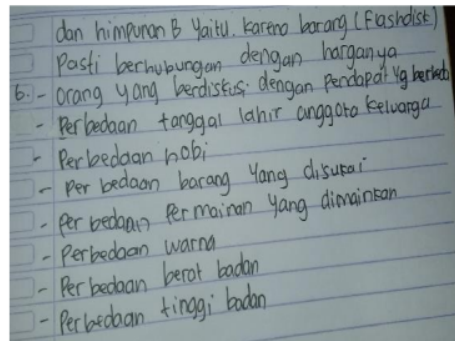 dan himpunan B yaitu. karena barang (Flashdisk)
Pasti berhubungan dengan harganya
6. - Orang yang berdiskusi dengan Pendapat yg
- Perbedaan tanggal lahir anggota keluarga
- Perbedaan hobi
- Perbedaan barang yang disukai
- Perbedaan Permainan yang dimainkan
- Perbedaan warna
- Perbedaan berat badan
- Perbedaan tinggi badan